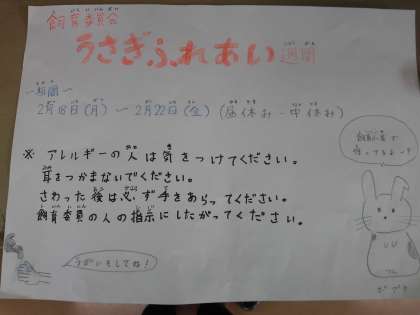 飼育委員会
うさぎふれあい週間
〜期間〜
2月18日(月) 〜 2月22日(金) (昼休み-中休み)
※ アレルギーの人は気をつけてください。
耳をつかまないでください。
さわった後は必ず手をあらってください。
飼育委員の人の指示にしたがってください。
飼育小屋で
待ってるよー?
うがいもしてね!